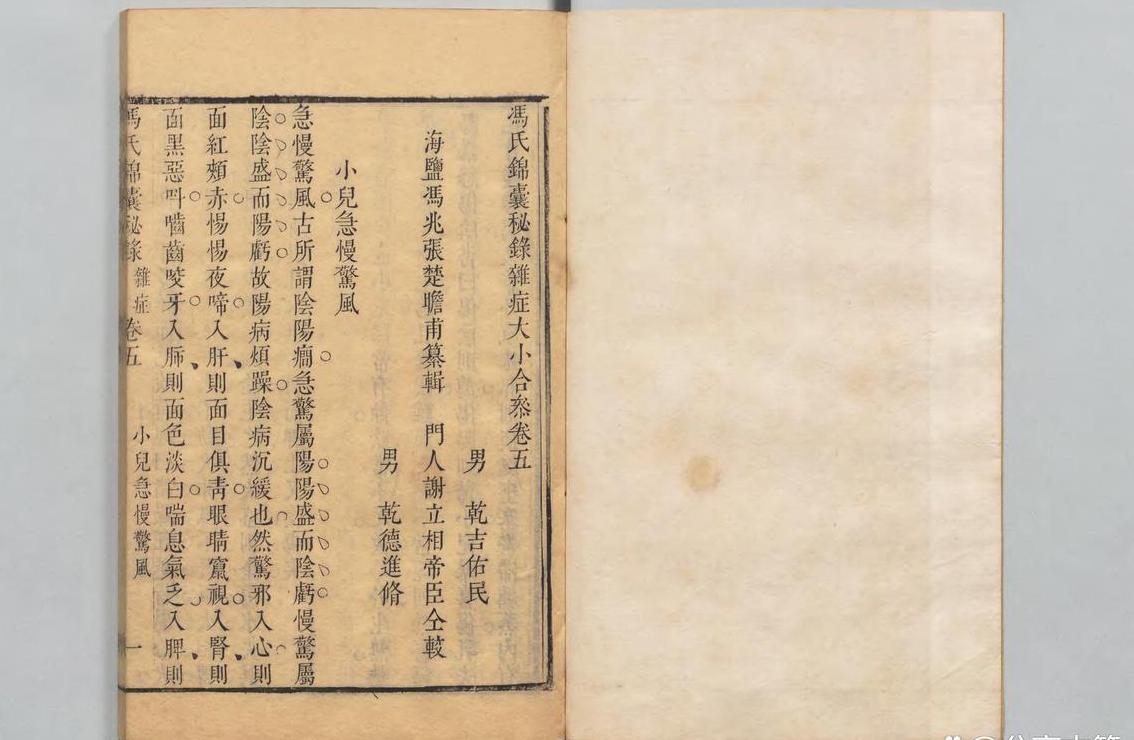 馮氏錦囊秘錄雜症大小合叅卷五
男 乾吉佑民
海鹽馮兆張楚瞻甫纂輯 門人謝立相帝臣仝較
男 乾德進脩
小兒急慢驚風
急慢驚風古所謂陰陽癎急驚屬陽陽盛而陰虧慢驚屬
陰陰盛而陽虧故陽病煩躁陰病沉緩也然驚邪入心則
面紅頰赤惕惕夜啼入肝則面目俱青眼睛竄視入腎則
面黑惡呌嚙齒咬牙入肺則面色淡白喘息氣乏入脾則
馮氏錦囊秘錄 雜症 卷五 小兒急慢驚風 一